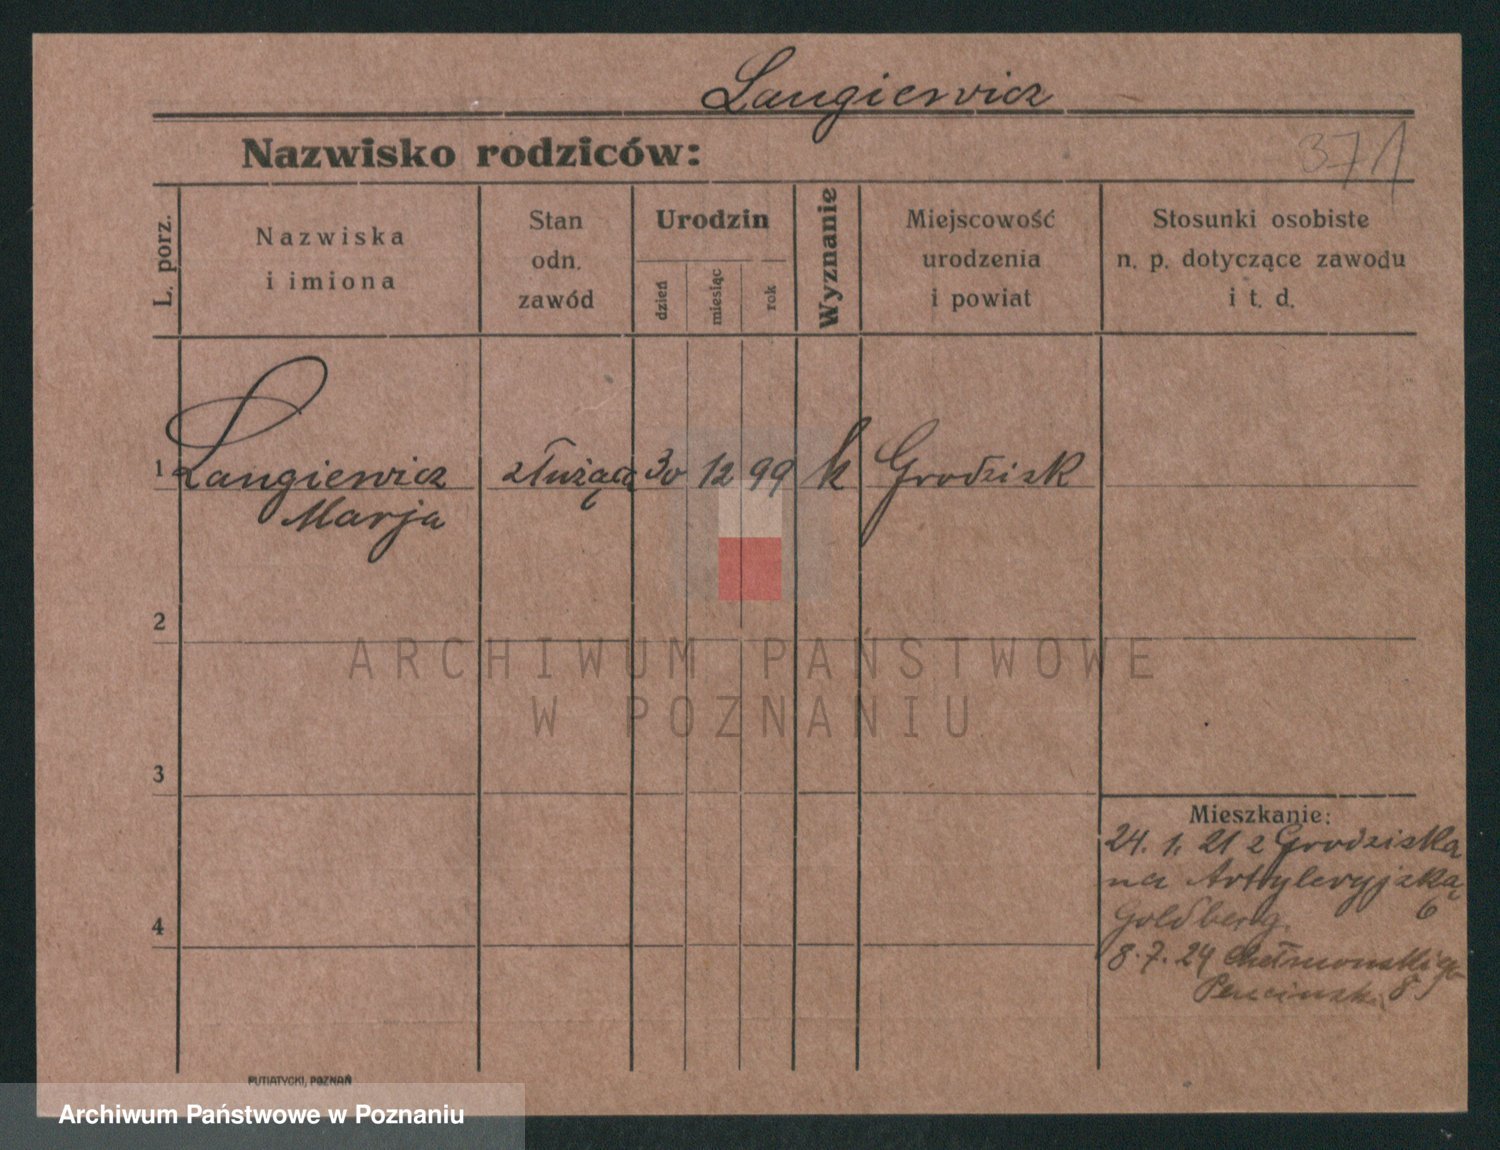 Langiewicz
Nazwisko rodziców:
371
L. porz.
Nazwiska
i imiona
Stan
odn.
zawód
Urodzin
dzień
miesiąc
rok
Wyznanie
Miejscowość
urodzenia
i powiat
Stosunki osobiste
n. p. dotyczące zawodu
i t. d.
1 Langiewicz służącą 30 12 99 k Grodzisk
Marja
2
ARCHIWUM PAŃSTWOWE
W POZNANIU
3
Mieszkanie:
24. 1. 21 z Grodziska
na Artyleryjską
6
Goldberg.
4
8. 7. 24 Chełmońskiego
8
PUTIATYCKI, POZNAŃ
Archiwum Państwowe w Poznaniu